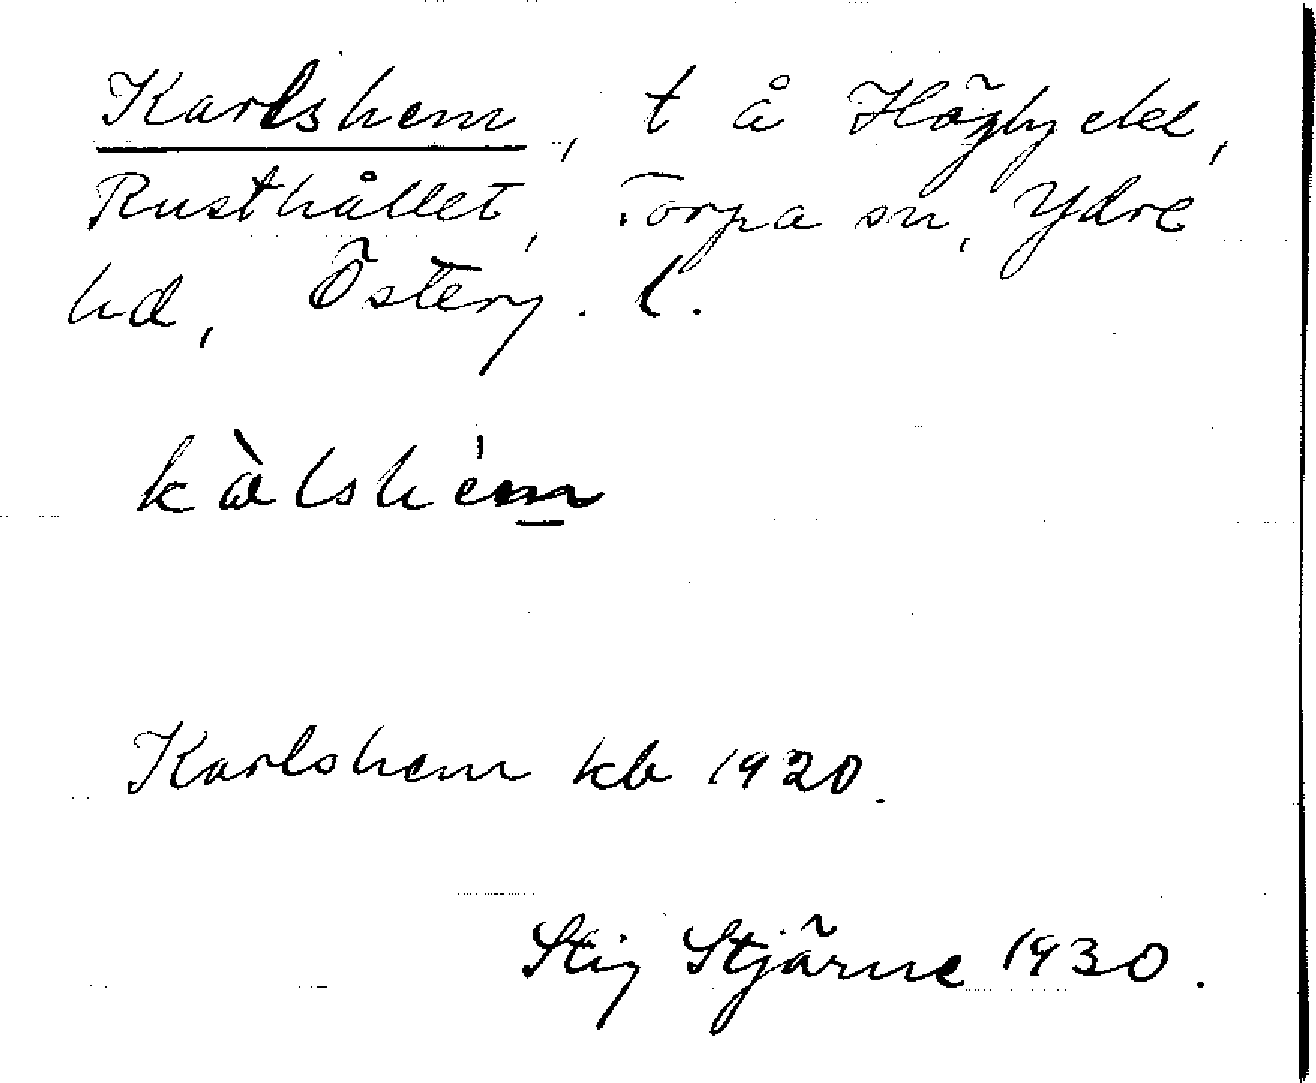 Karlshem, t å Höglyckel,
Rusthållet, Torpa sn, Ydre
hd, Österg. l.
kàlshém
Karlshem kb 1920.
Stig Stjärne 1930.